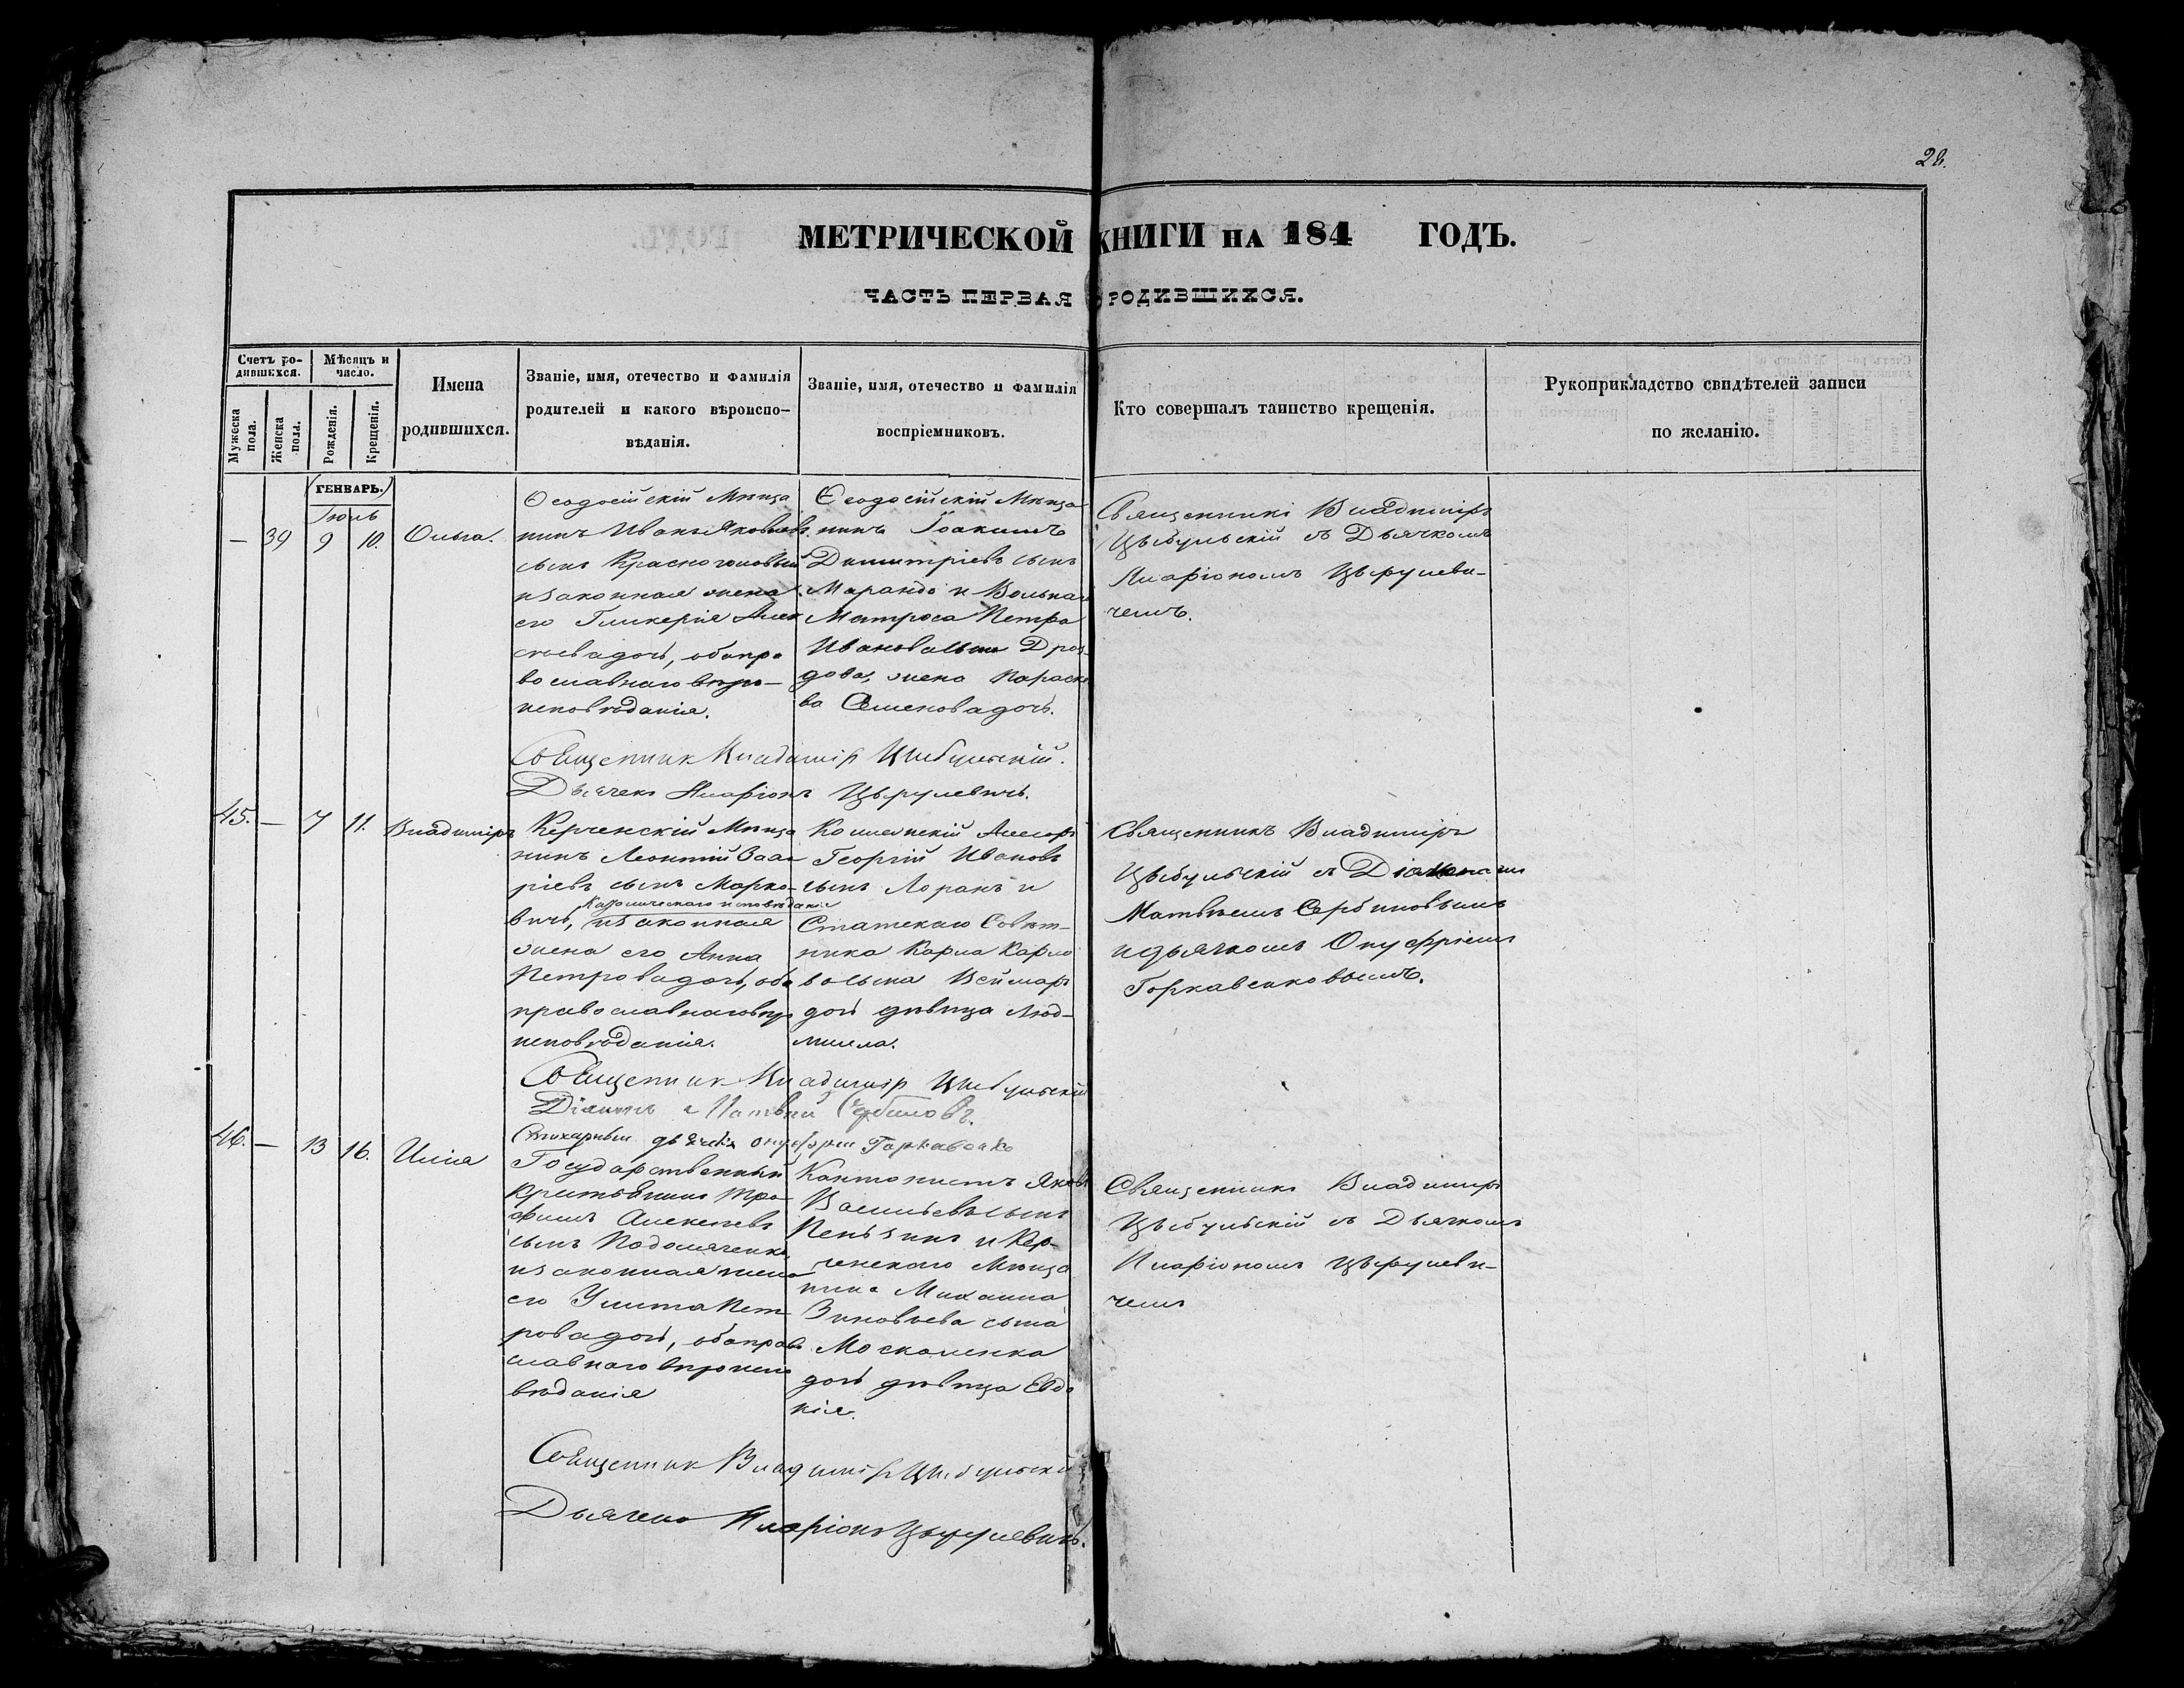 28.
МЕТРИЧЕСКОЙ КНИГИ НА 184 ГОДЪ.
ЧАСТЬ ПЕРВАЯ О РОДИВШИХСЯ.
Счетъ ро-
дившихся.
Мужеска пола.
Женска пола.
Мѣсяцъ и
число.
Рожденія.
Крещенія.
Имена
родившихся.
Званіе, имя, отечество и фамилія
родителей и какого вѣроиспо-
вѣданія.
Званіе, имя, отечество и фамилія
воспріемниковъ.
Кто совершалъ таинство крещенія.
Рукоприкладство свидѣтелей записи
по желанію.
(ГЕНВАРЬ.)
Іюль
— 39 9 10. Ольга.
Ѳеодосійскій Мѣща
нинъ Иванъ Яковлевъ
сынъ Красноголовый
и законная жена
его Гликерія Алек
сѣева дочь, оба пра
вославнаго вѣро-
исповѣданія.
Ѳеодосійскій Мѣща
нинъ Іоакимъ
Димитріевъ сынъ
Марандо и Вольнаго
Матроса Петра
Иванова сына Дроз-
дова, жена Параске
ва Семенова дочь.
Священникъ Владиміръ
Цыбульскій съ Дьячкомъ
Иларіономъ Цырулеви-
чемъ.
Священник Владимір Цыбульскій.
Дьячекъ Иларіонъ Цырулевичъ.
45. — 7 11. Владиміръ
Керченскій Мѣща
нинъ Леонтій Вале
ріевъ сынъ Марко-
Католическаго исповѣданія
вичъ, и законная
жена его Анна
Петрова дочь,
православнаго вѣро
исповѣданія.
Коллежскій Ассесоръ
Георгій Ивановъ
сынъ Лоранъ и
Статскаго Совѣт-
ника Карла Карло
ва сына Веймаръ
дочь дѣвица Люд-
милла.
Священникъ Владиміръ
Цыбульскій съ Діакономъ
Матвѣемъ Сербиновымъ
и дьячкомъ Онуфріемъ
Горкавенковымъ.
Священник Владимір Цыбульскій
Діаконъ Матвѣй Сербиновъ.
Стихарный дьячекъ Онуфрій Горкавенко
46. — 13 16. Илія
Государственный
Крестьянинъ Тро-
фимъ Алексѣевъ
сынъ Подоляченко
и законная жена
его Улита Пет-
рова дочь, оба право
славнаго вѣроиспо
вѣданія
Кантонистъ Яковъ
Васильевъ сынъ
Пензинъ и Кер-
ченскаго Мѣща
нина Михаила
Зиновьева сына
Москаленка
дочь дѣвица Евдо
кія.
Священникъ Владиміръ
Цыбульскій съ Дьячкомъ
Иларіономъ Цырулеви-
чемъ
Священник Владимір Цыбульскій
Дьячекъ Иларіонъ Цырулевичъ.